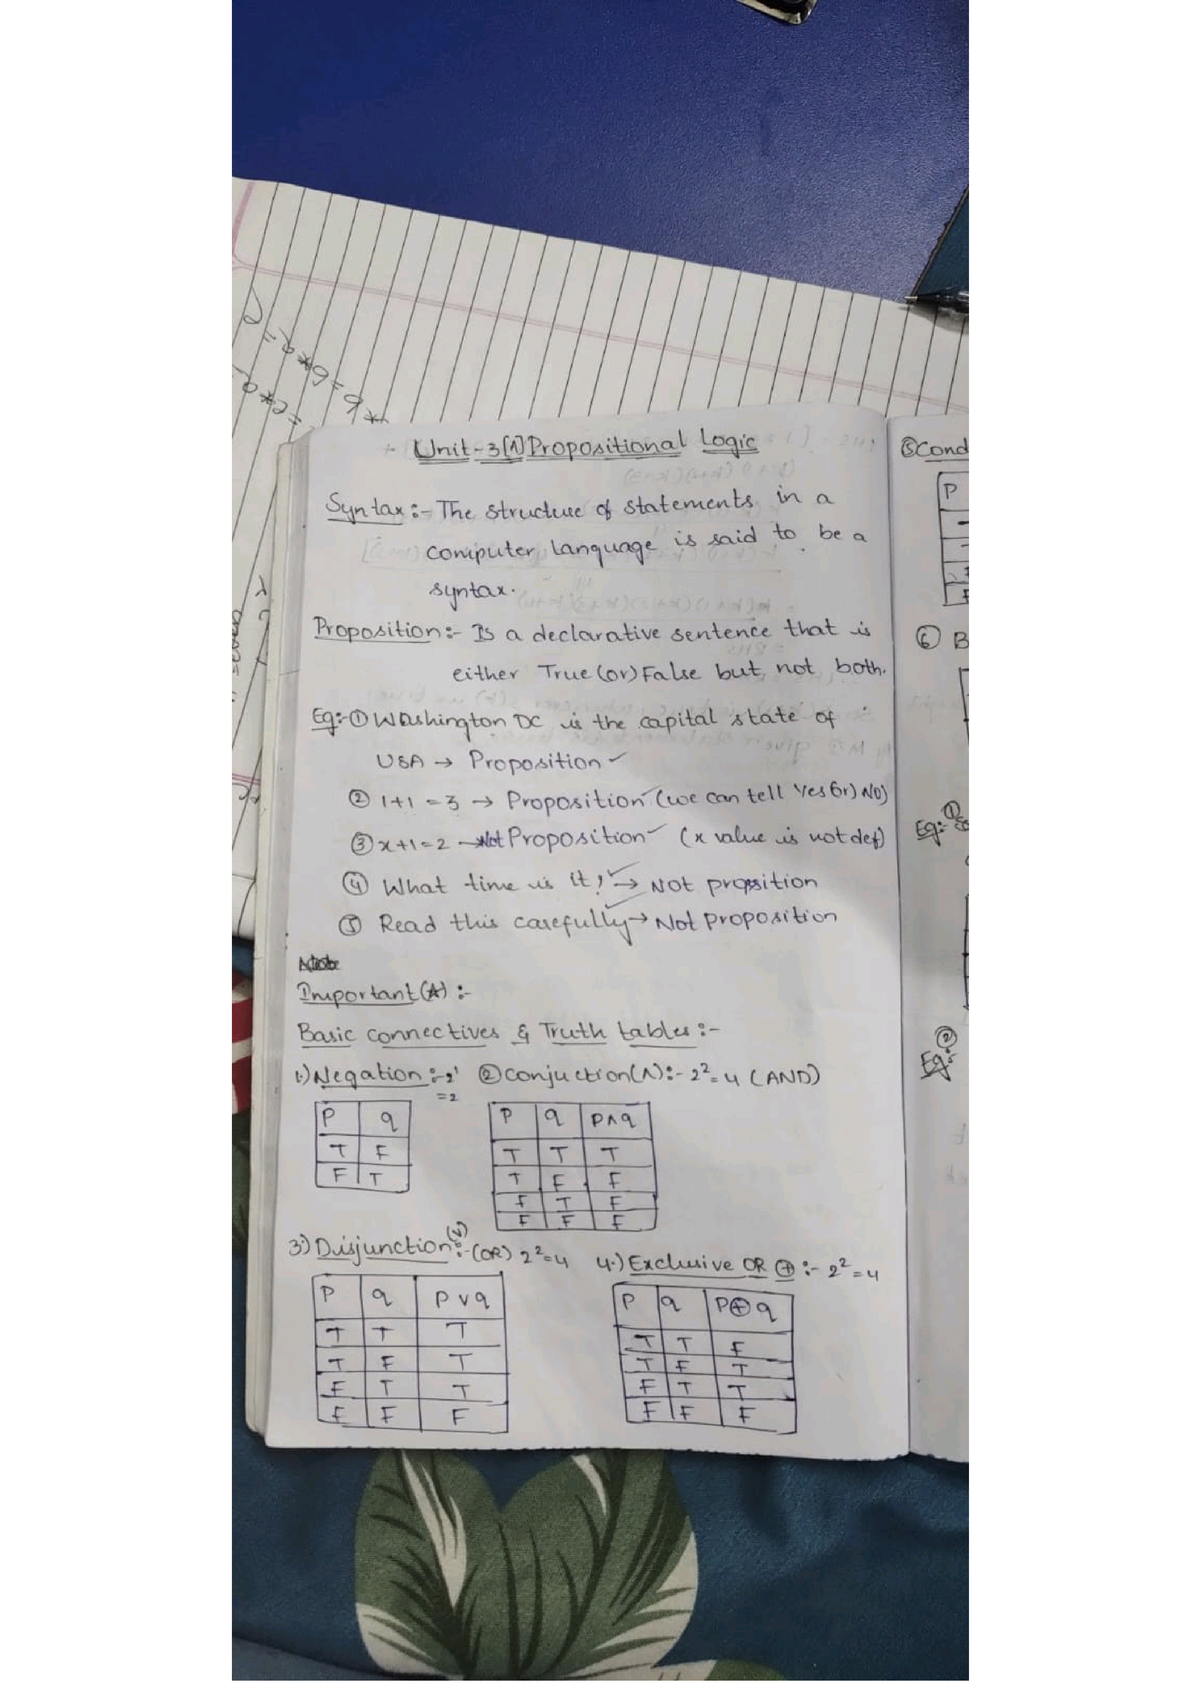 Unit-3[1] Propositional Logic
Syntax:- The structure of statements in a
computer language is said to be a
syntax.
Proposition:- Is a declarative sentence that is
either True (or) False but not both.
Eg:- ① Washington DC is the capital state of
USA → Proposition ✓
② 1+1=3 → Proposition (we can tell Yes (or) No)
③ x+1=2 → Not Proposition ✓ (x value is not def)
④ What time is it? → Not proposition
⑤ Read this carefully → Not Proposition
Important (★) :-
Basic connectives & Truth tables:-
1.) Negation :- 2¹ =2
P q
T F
F T
② Conjuction(∧):- 2²=4 (AND)
P q P∧q
T T T
T F F
F T F
F F F
3.) Disjunction (∨) :- (OR) 2²=4
P q P∨q
T T T
T F T
F T T
F F F
4.) Exclusive OR ⊕ :- 2²=4
P q P⊕q
T T F
T F T
F T T
F F F
⑤ Cond
P
⑥ B
Eg:- ①
② Eg:-